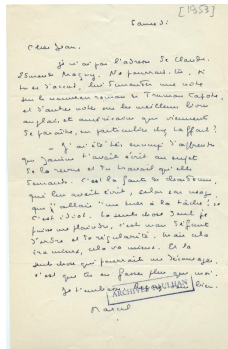 [1953]
Samedi
Cher Jean,
je n'ai pas l'adresse de Claude-
Edmonde Magny. Ne pourrais-tu, si
tu es d'accord, lui demander une note
sur le nouveau roman de Truman Capote,
et d'autres notes sur les meilleurs livres
anglais et américains qui viennent
de paraître, en particulier chez Laffont ?
J'ai été très ennuyé d'apprendre
que Janine t'avait écrit au sujet
de la revue et du travail qu'elle
demande. C'est la faute de
qui lui avait écrit, selon
que j'"allais" me tuer à la tâche !
C'est idiot. La seule chose dont je
puisse me plaindre, c'est mon défaut
d'ordre et de régularité. Mais cela
ira mieux, cela va mieux. Et la
seule chose qui pourrait me décourager,
c'est que tu en fasses plus que moi.
Je t'embrasse
Marcel
ARCHIVES PAULHAN